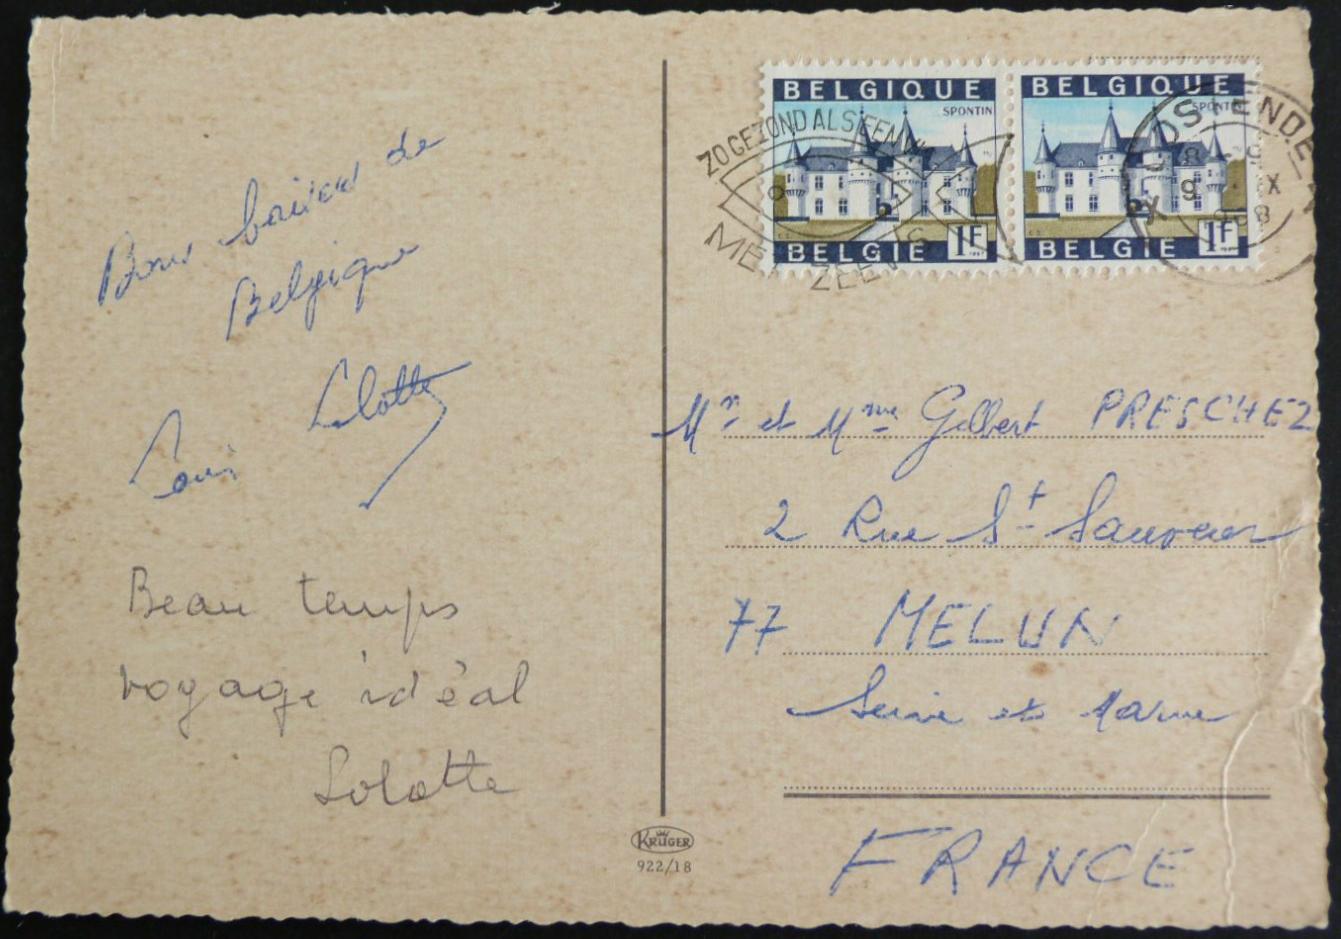 Bons baisers de
Belgique
Lolotte
Louis
Beau temps
voyage idéal
Lolotte
KRÜGER
922/18
BELGIQUE
SPONTIN
BELGIE 1F
BELGIQUE
SPONTIN
BELGIE 1F
ZO GEZOND ALS EEN
ZEEVIS
OOSTENDE
Mr et Mme Gilbert PRESCHEZ
2 Rue St Sauveur
77 MELUN
Seine et Marne
FRANCE